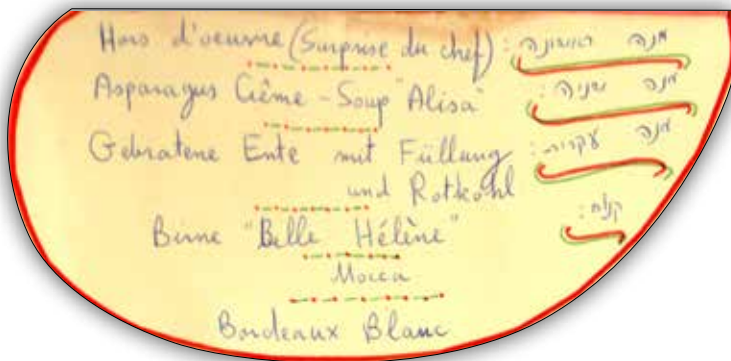 Hors d'oeuvre (Surprise du chef) : מנה ראשונה
Asparagus Crème - Soup "Alisa" מנה שניה :
Gebratene Ente mit Füllung : מנה עקרית
und Rotkohl
Birne "Belle Hélène" קנוח :
Mocca
Bordeaux Blanc